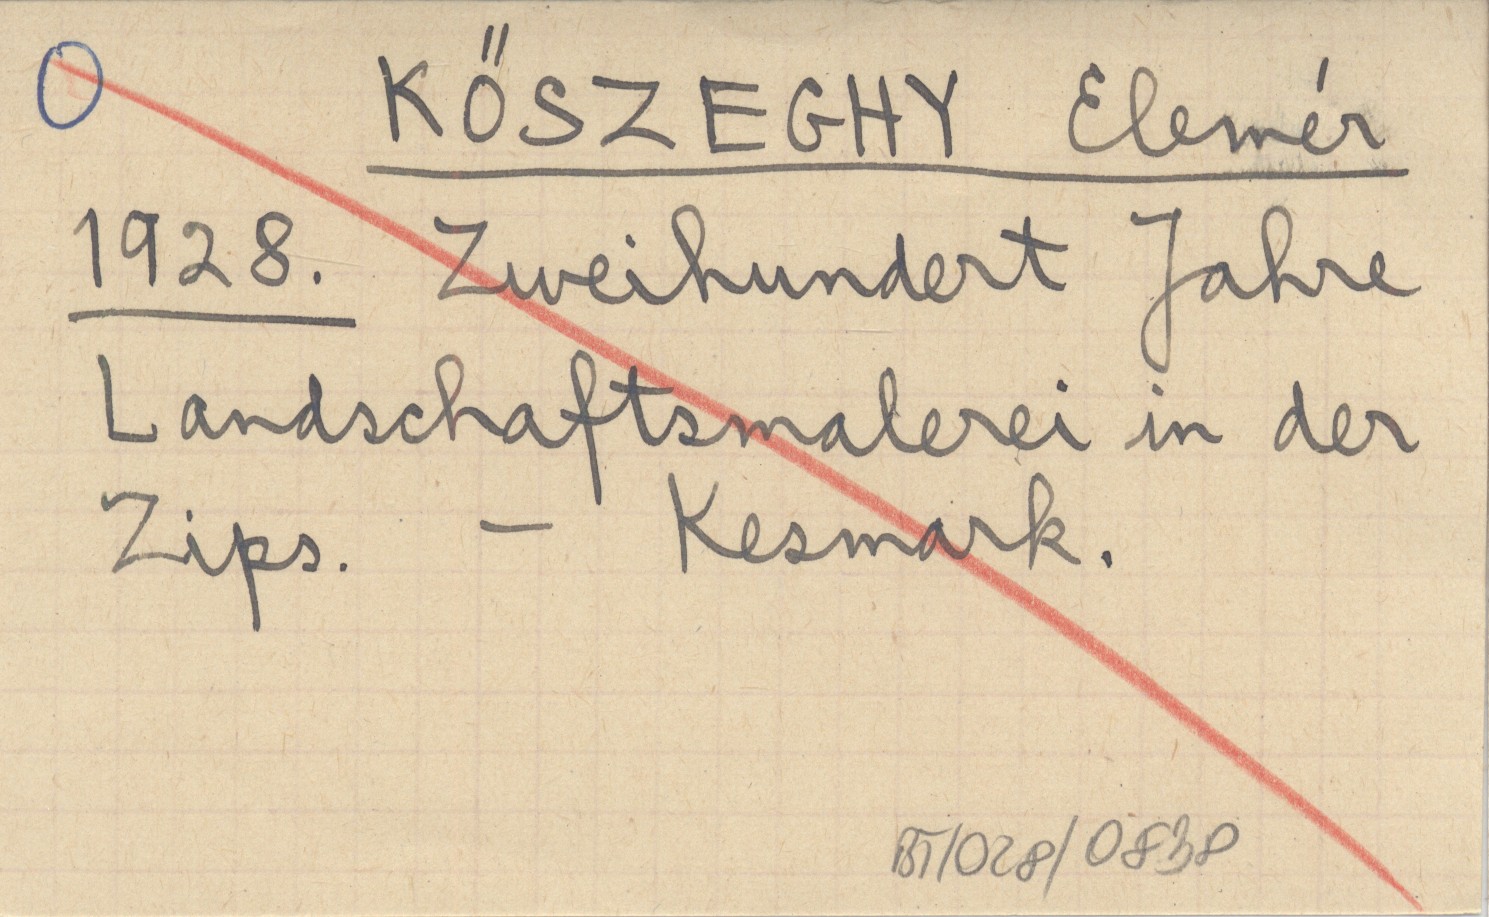 KŐSZEGHY Elemér
1928. Zweihundert Jahre
Landschaftsmalerei in der
Zips. — Kesmark.
BT/028/0838